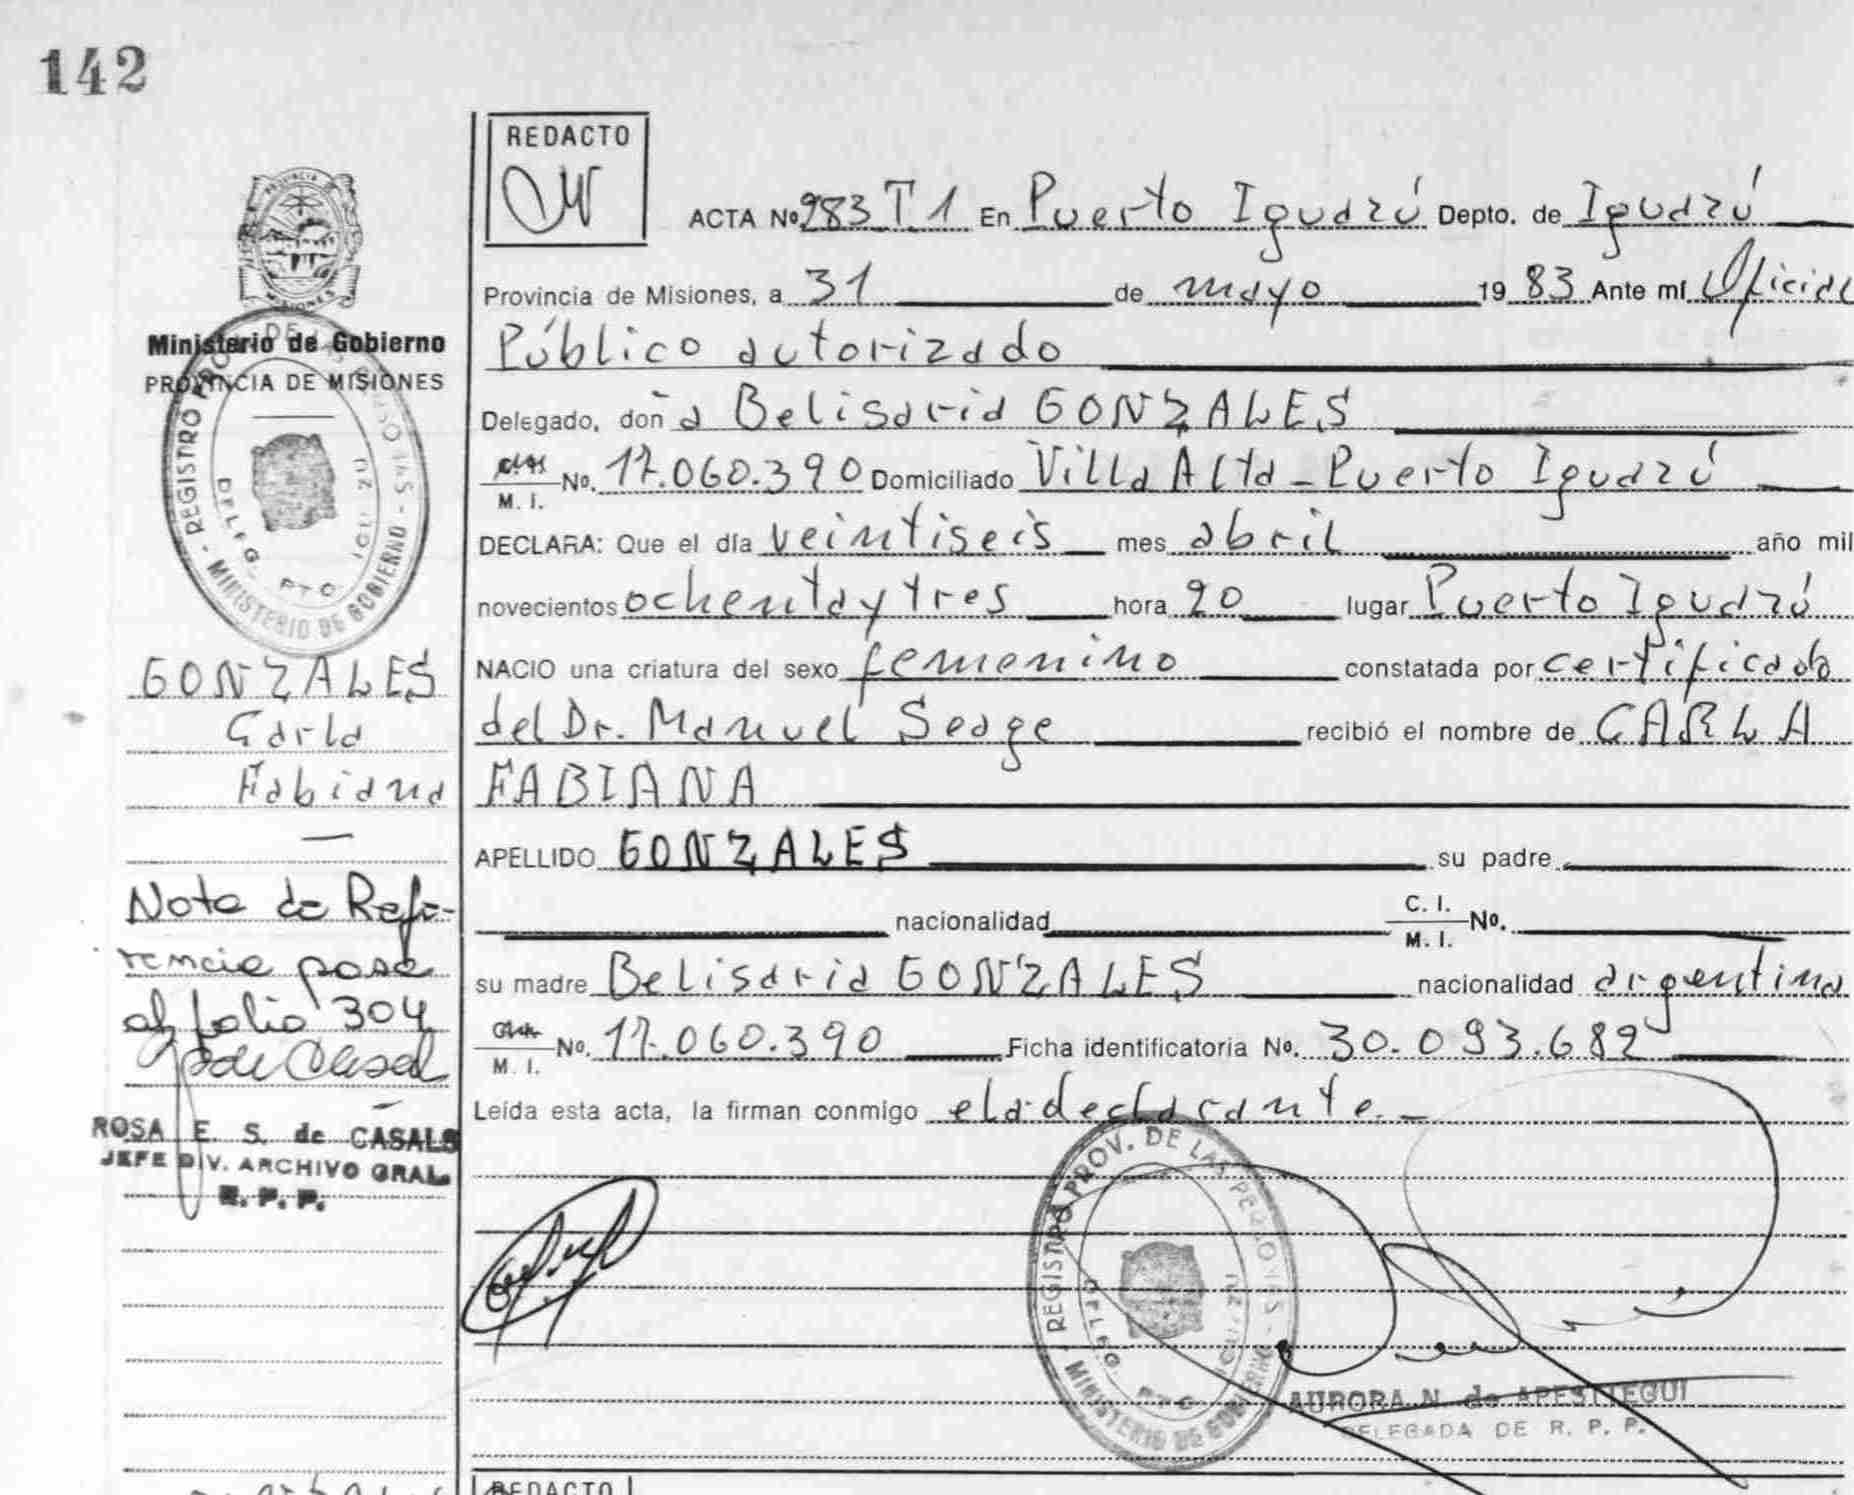 142
REDACTO
ACTA Nº 283 T 1 En Puerto Iguazú Depto. de Iguazú
Provincia de Misiones, a 31 de mayo 19 83 Ante mí Oficial
Público autorizado
Delegado, doña Belisaria GONZALES
M. I. No. 17.060.390 Domiciliado Villa Alta - Puerto Iguazú
DECLARA: Que el día veintiseis mes abril año mil
novecientos ochenta y tres hora 20 lugar Puerto Iguazú
NACIO una criatura del sexo femenino constatada por certificado
del Dr. Manuel Seage recibió el nombre de CARLA
FABIANA
APELLIDO GONZALES su padre
nacionalidad C. I. M. I. No.
su madre Belisaria GONZALES nacionalidad argentina
M. I. No. 17.060.390 Ficha identificatoria No. 30.093.682
Leída esta acta, la firman conmigo el a declarante.-
PROVINCIA DE MISIONES
Ministerio de Gobierno
PROVINCIA DE MISIONES
REGISTRO PROV. DE LAS PERSONAS - MINISTERIO DE GOBIERNO -
DELEG. PTO. IGUAZU
GONZALES
Carla
Fabiana
—
Nota de Refe-
rencia pasa
al folio 304
ROSA E. S. de CASALS
JEFE DIV. ARCHIVO GRAL.
R. P. P.
REGISTRO PROV. DE LAS PERSONAS - MINISTERIO DE GOBIERNO
DELEG. PTO. IGUAZU
AURORA N. de APESTTEGUI
DELEGADA DE R. P. P.
REDACTO